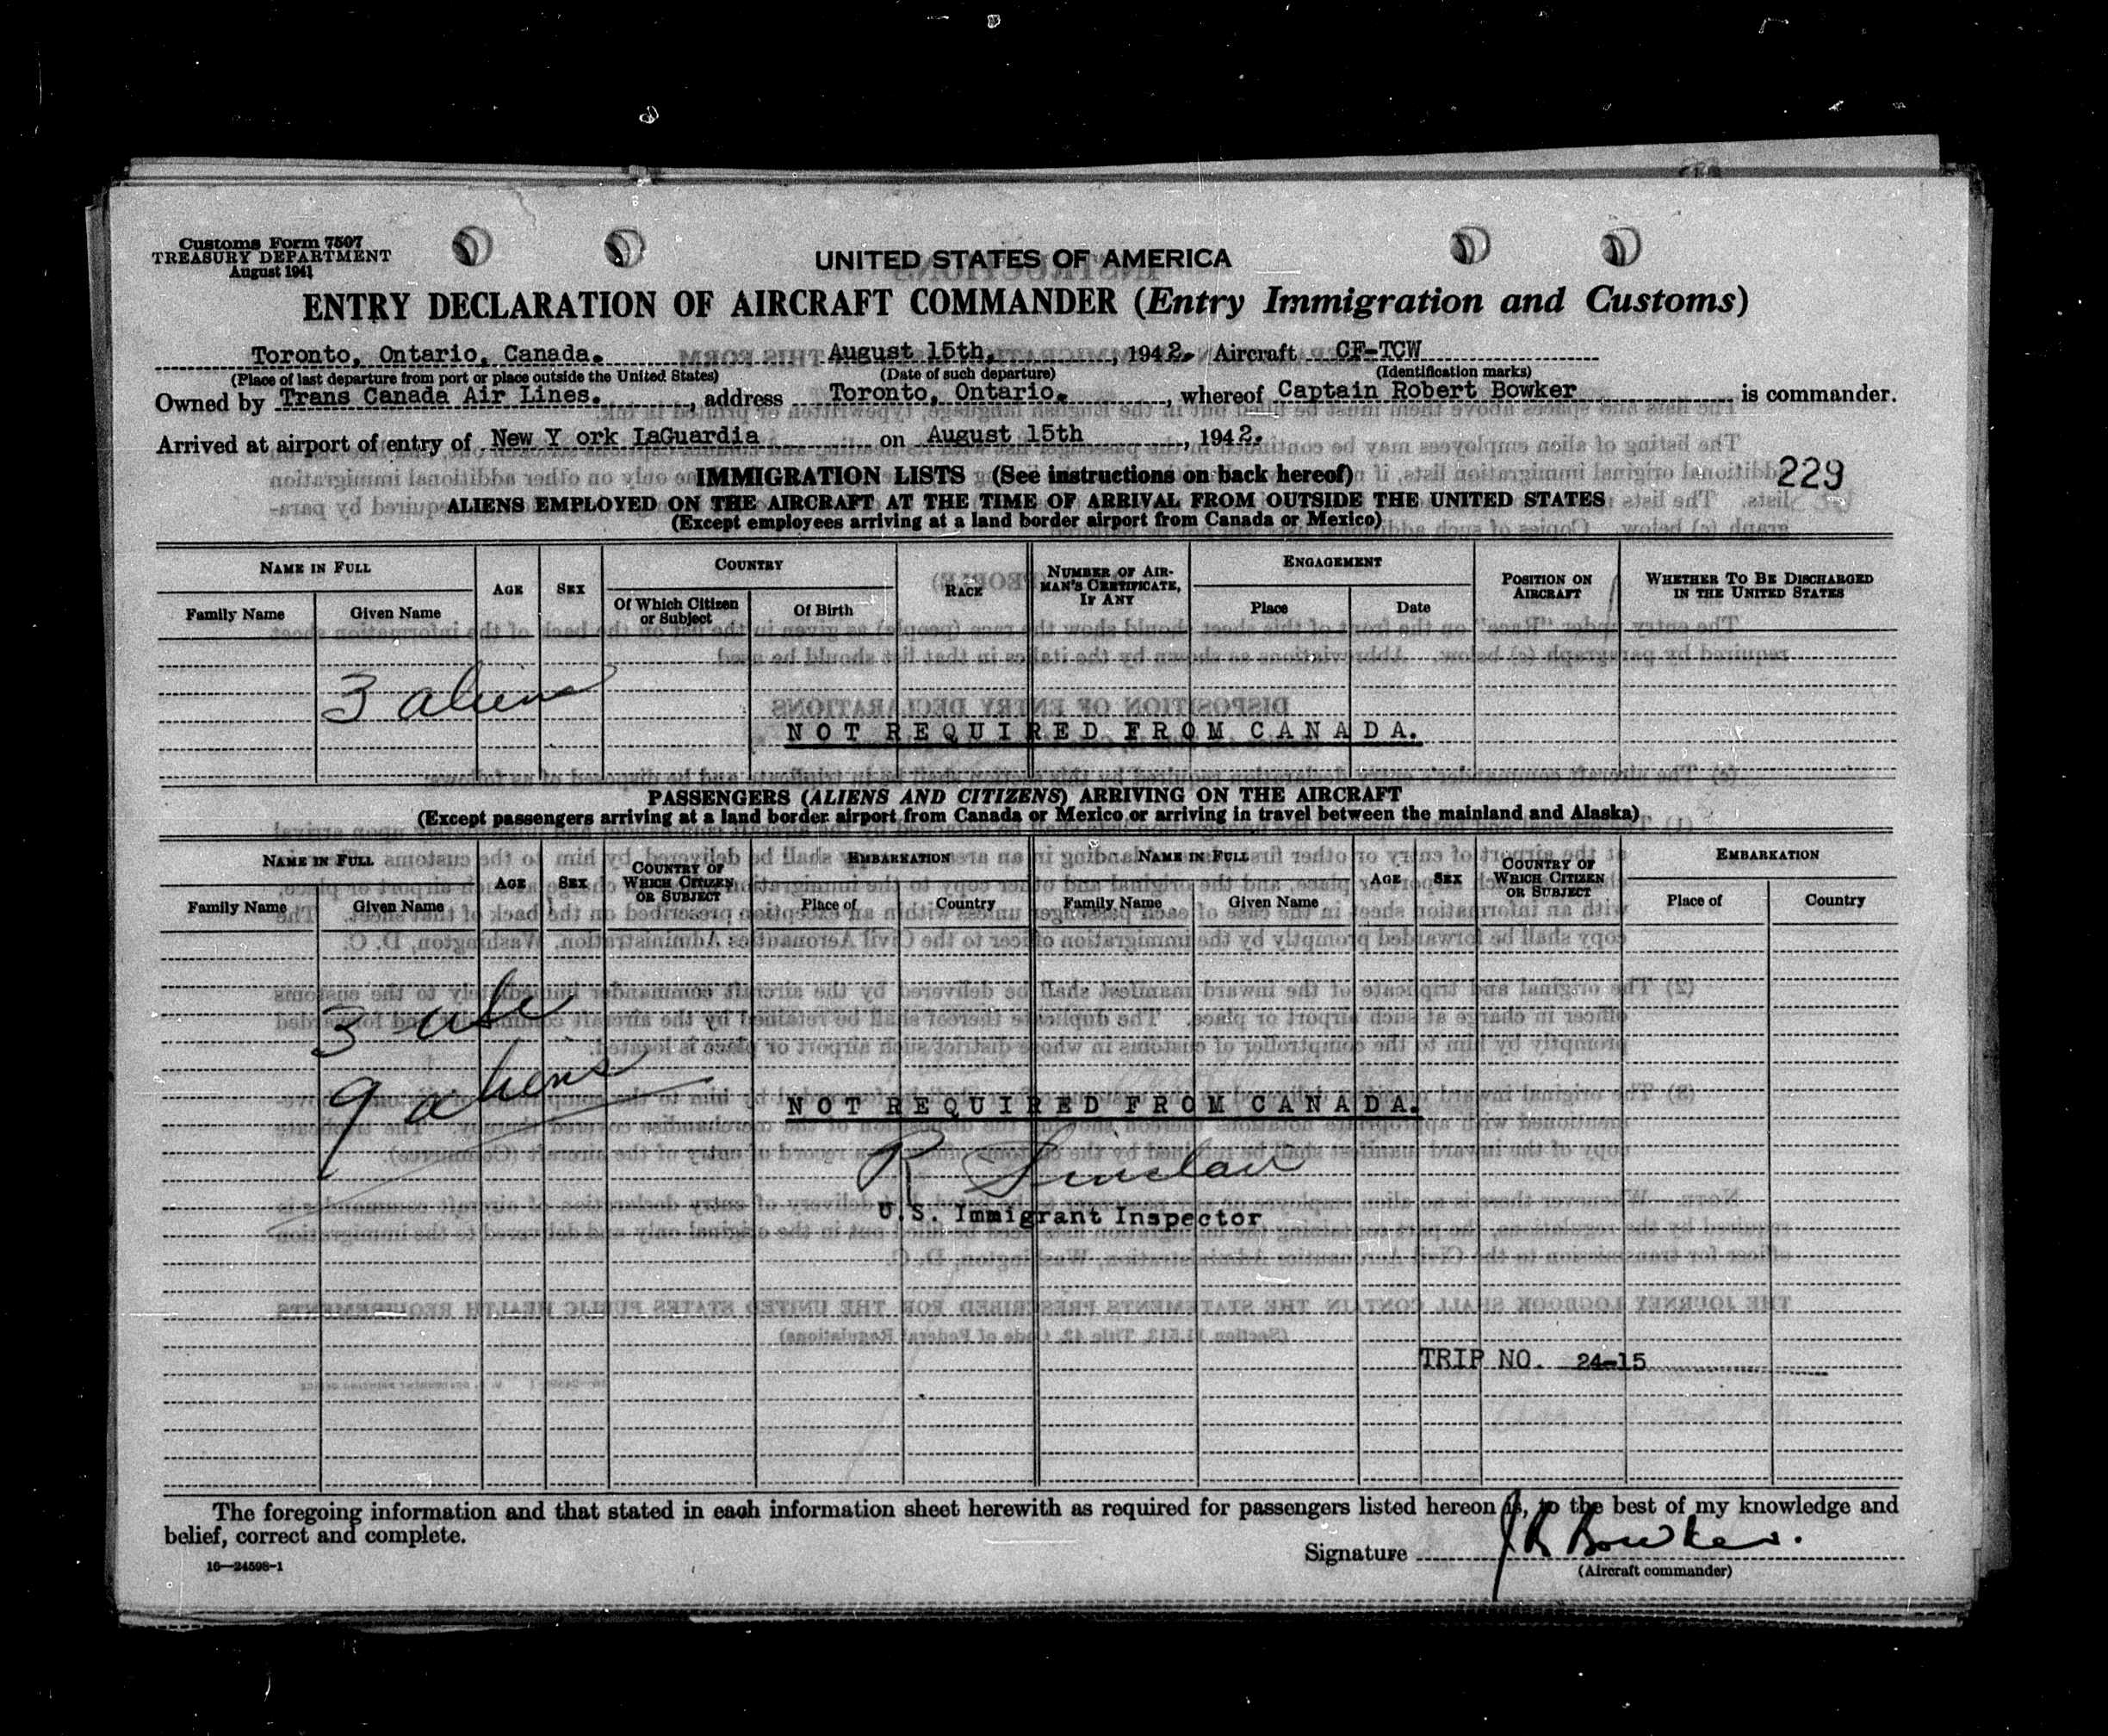 Customs Form 7507
TREASURY DEPARTMENT
August 1941
UNITED STATES OF AMERICA
ENTRY DECLARATION OF AIRCRAFT COMMANDER (Entry Immigration and Customs)
Toronto, Ontario, Canada. August 15th, , 1942. Aircraft CF-TCW
(Place of last departure from port or place outside the United States) (Date of such departure) (Identification marks)
Owned by Trans Canada Air Lines. , address Toronto, Ontario. , whereof Captain Robert Bowker is commander.
Arrived at airport of entry of New Y ork LaGuardia on August 15th , 1942.
IMMIGRATION LISTS (See instructions on back hereof)
229
ALIENS EMPLOYED ON THE AIRCRAFT AT THE TIME OF ARRIVAL FROM OUTSIDE THE UNITED STATES
(Except employees arriving at a land border airport from Canada or Mexico)
NAME IN FULL AGE SEX COUNTRY RACE NUMBER OF AIRMAN'S CERTIFICATE, IF ANY ENGAGEMENT POSITION ON AIRCRAFT WHETHER TO BE DISCHARGED IN THE UNITED STATES
Family Name Given Name Of Which Citizen or Subject Of Birth Place Date
3 aliens
NOT REQUIRED FROM CANADA.
PASSENGERS (ALIENS AND CITIZENS) ARRIVING ON THE AIRCRAFT
(Except passengers arriving at a land border airport from Canada or Mexico or arriving in travel between the mainland and Alaska)
NAME IN FULL AGE SEX COUNTRY OF WHICH CITIZEN OR SUBJECT EMBARKATION NAME IN FULL AGE SEX COUNTRY OF WHICH CITIZEN OR SUBJECT EMBARKATION
Family Name Given Name Place of Country Family Name Given Name Place of Country
3 usc
9 aliens
NOT REQUIRED FROM CANADA.
R Sinclair
U.S. Immigrant Inspector
TRIP NO. 24-15
The foregoing information and that stated in each information sheet herewith as required for passengers listed hereon is, to the best of my knowledge and
belief, correct and complete.
16—24598-1
Signature J R Bowker.
(Aircraft commander)